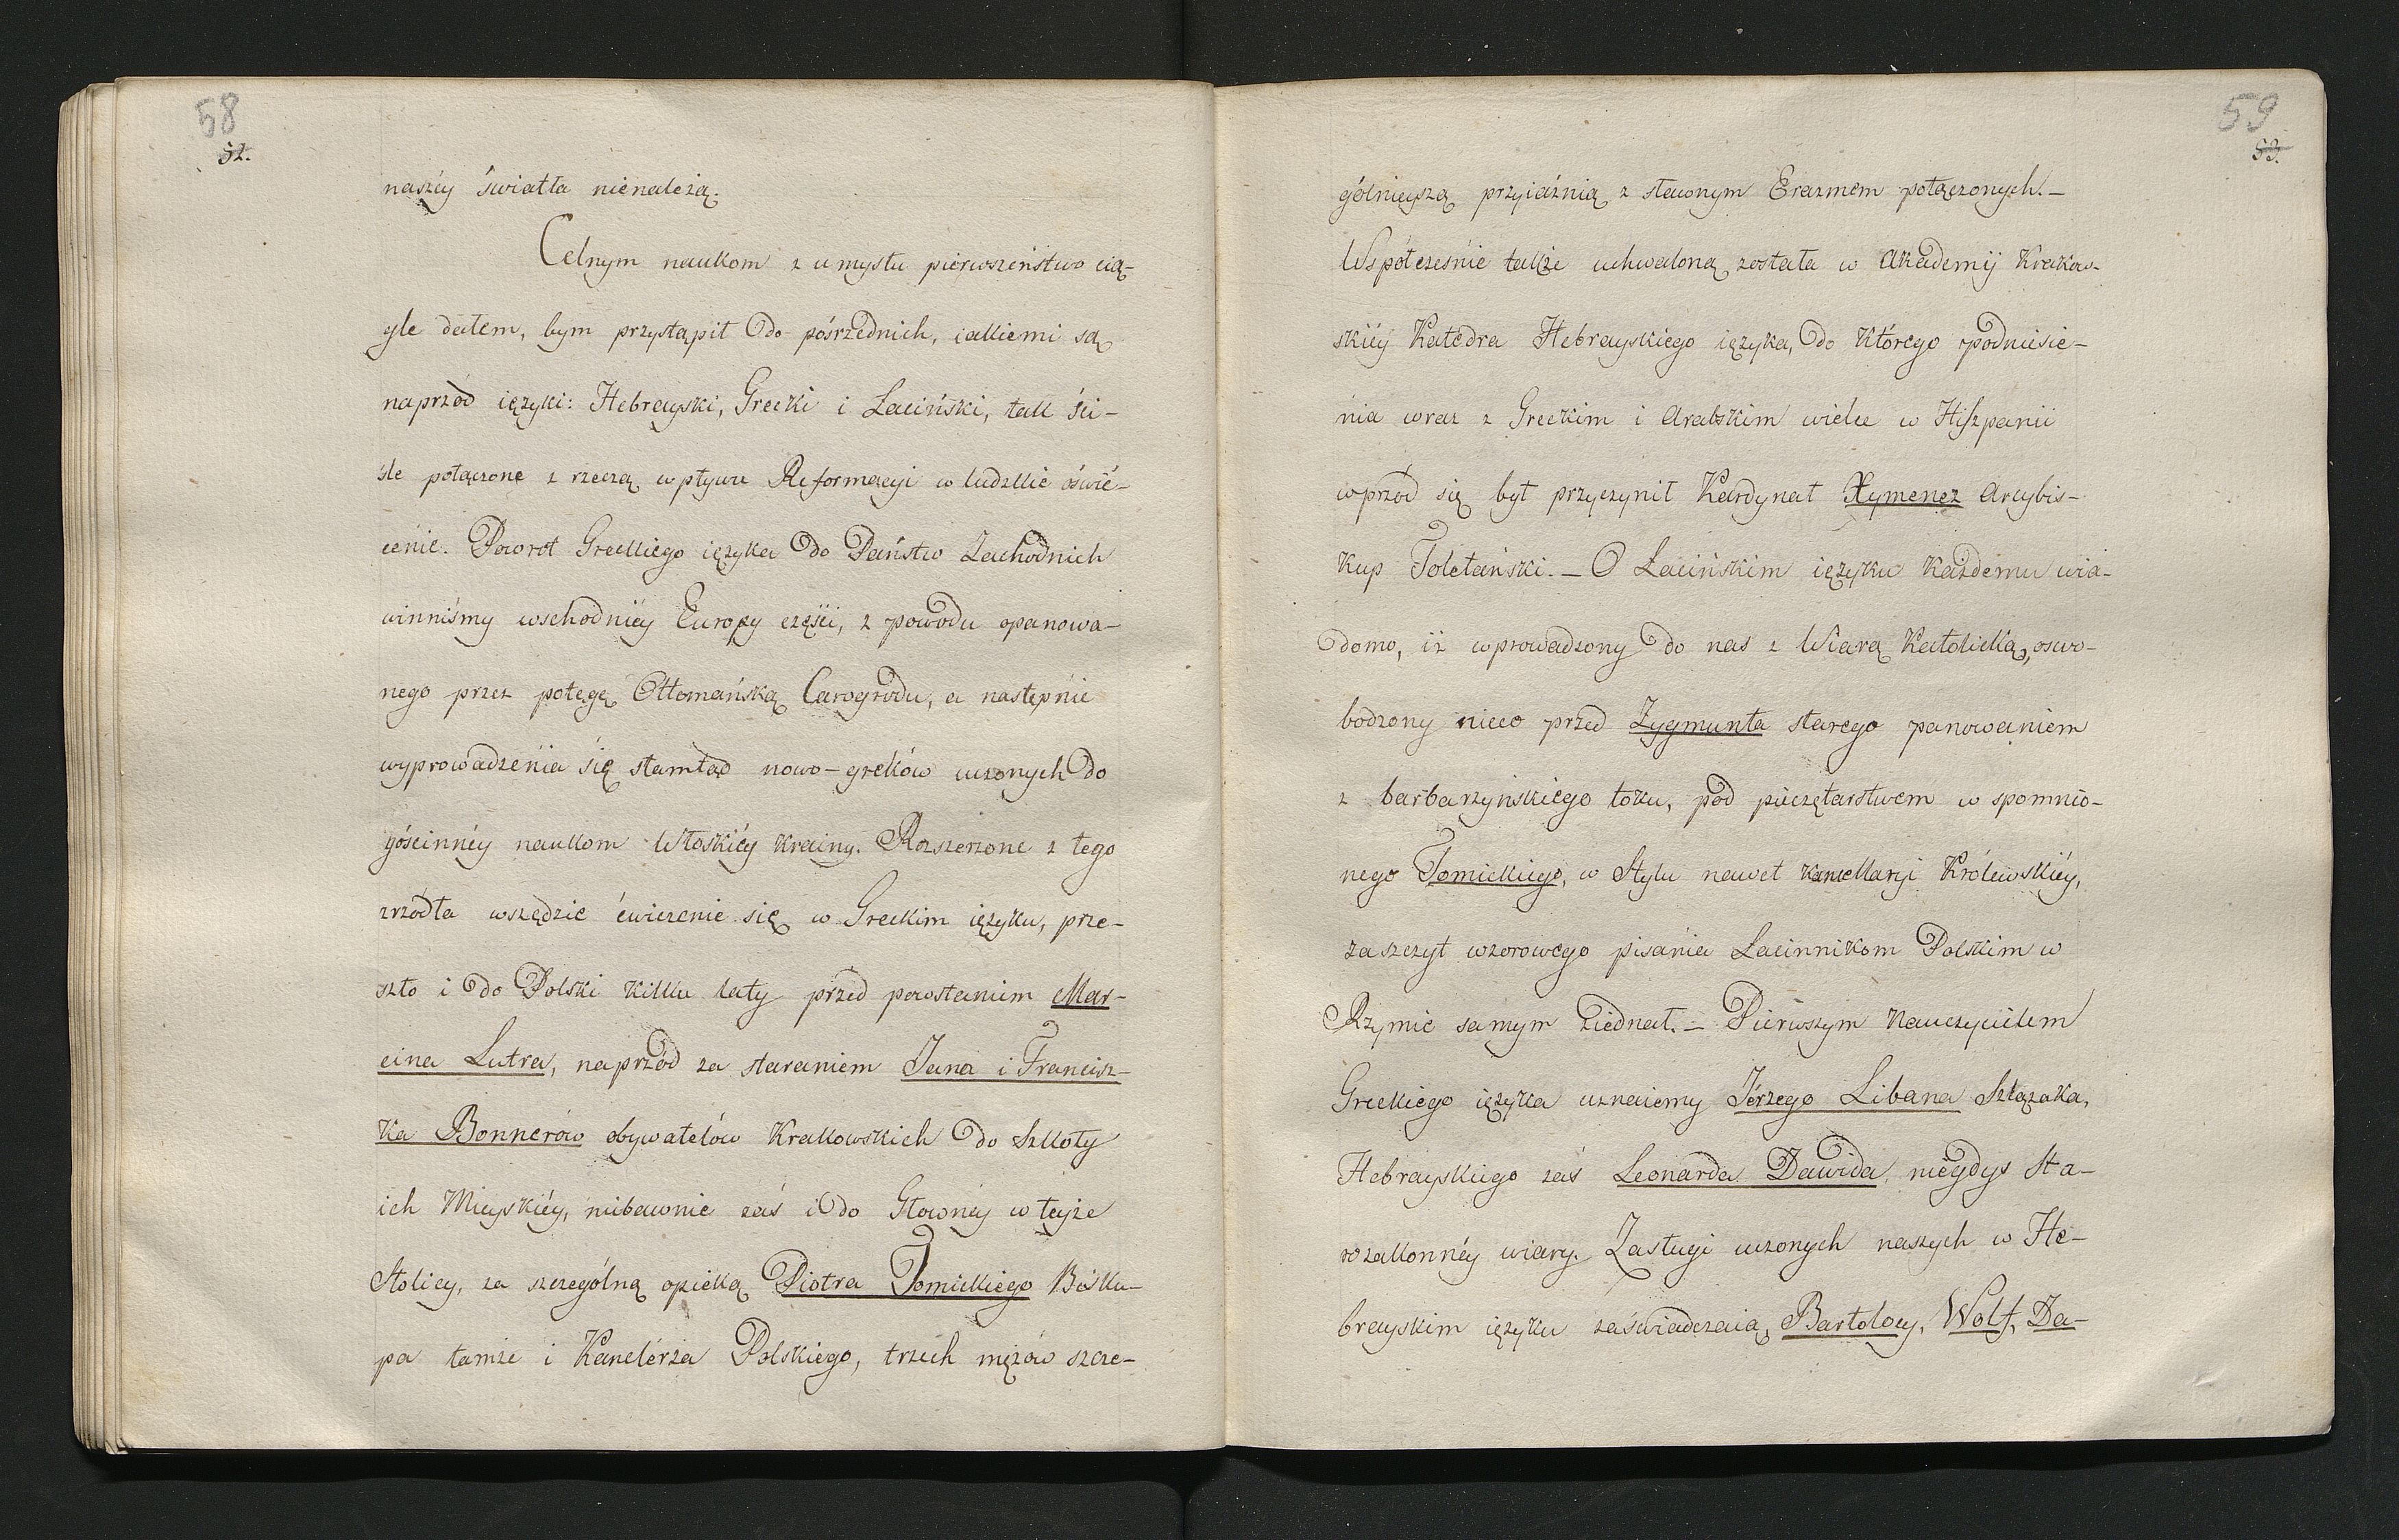 58
52.
naszéy światła nienależą.
Celnym naukom z umysłu pierwszeństwo cią-
gle dałem, bym przystąpił do pośrzednich, iakiemi są
naprzód ięzyki: Hebrayski, Grecki i Łaciński, tak ści-
śle połączone z rzeczą wpływu Reformacyi w ludzkie oświe-
cenie. Powrót Greckiego ięzyka do Państw Zachodnich
winniśmy wschodniéy Europy części, z powodu opanowa-
nego przez potęgę Ottomańską Carogrodu, a następnie
wyprowadzenia się stamtąd nowo-greków uczonych do
gościnnéy naukom Włoskiéy krainy. Rozszerzone z tego
zrzódła wszędzie ćwiczenie się w Greckim ięzyku, prze-
szło i do Polski kilku laty przed powstaniem Mar-
cina Lutra, naprzód za staraniem Jana i Francisz-
ka Bonnerów obywatelów Krakowskich do Szkoły
ich Mieyskiéy, niebawnie zaś i do Głównéy w teyże
Stolicy, za szczególną opieką Piotra Tomickiego Bisku-
pa tamże i Kanclérza Polskiego, trzech mężów szcze-
59
53.
gólnieyszą przyiaźnią z sławnym Erazmem połączonych.—
Współcześnie także uchwaloną została w Akademij Krakow-
skiéy Katedra Hebrayskiego ięzyka, do którego podniesie-
nia wraz z Greckim i Arabskim wiele w Hiszpanii
wprzód się był przyczynił Kardynał Xymenez Arcybis-
kup Toletański.— O Łacińskim ięzyku każdemu wia-
domo, iż wprowadzony do nas z Wiarą Katolicką, oswo-
bodzony nieco przed Zygmunta starego panowaniem
z barbarzyńskiego toku, pod pieczętarstwem wspomnio-
nego Tomickiego, w Stylu nawet Kancellaryi Królewskiéy,
zaszczyt wzorowego pisania Łacinnikom Polskim w
Rzymie samym ziednał.— Pierwszym Nauczycielem
Greckiego ięzyka uznaiemy Jérzego Libana Szlązaka,
Hebrayskiego zaś Leonarda Dawida, niegdyś Sta-
rozakonnéy wiary. Zasługi uczonych naszych w He-
brayskim ięzyku zaświadczaią, Bartolocy, Wolf, Da-